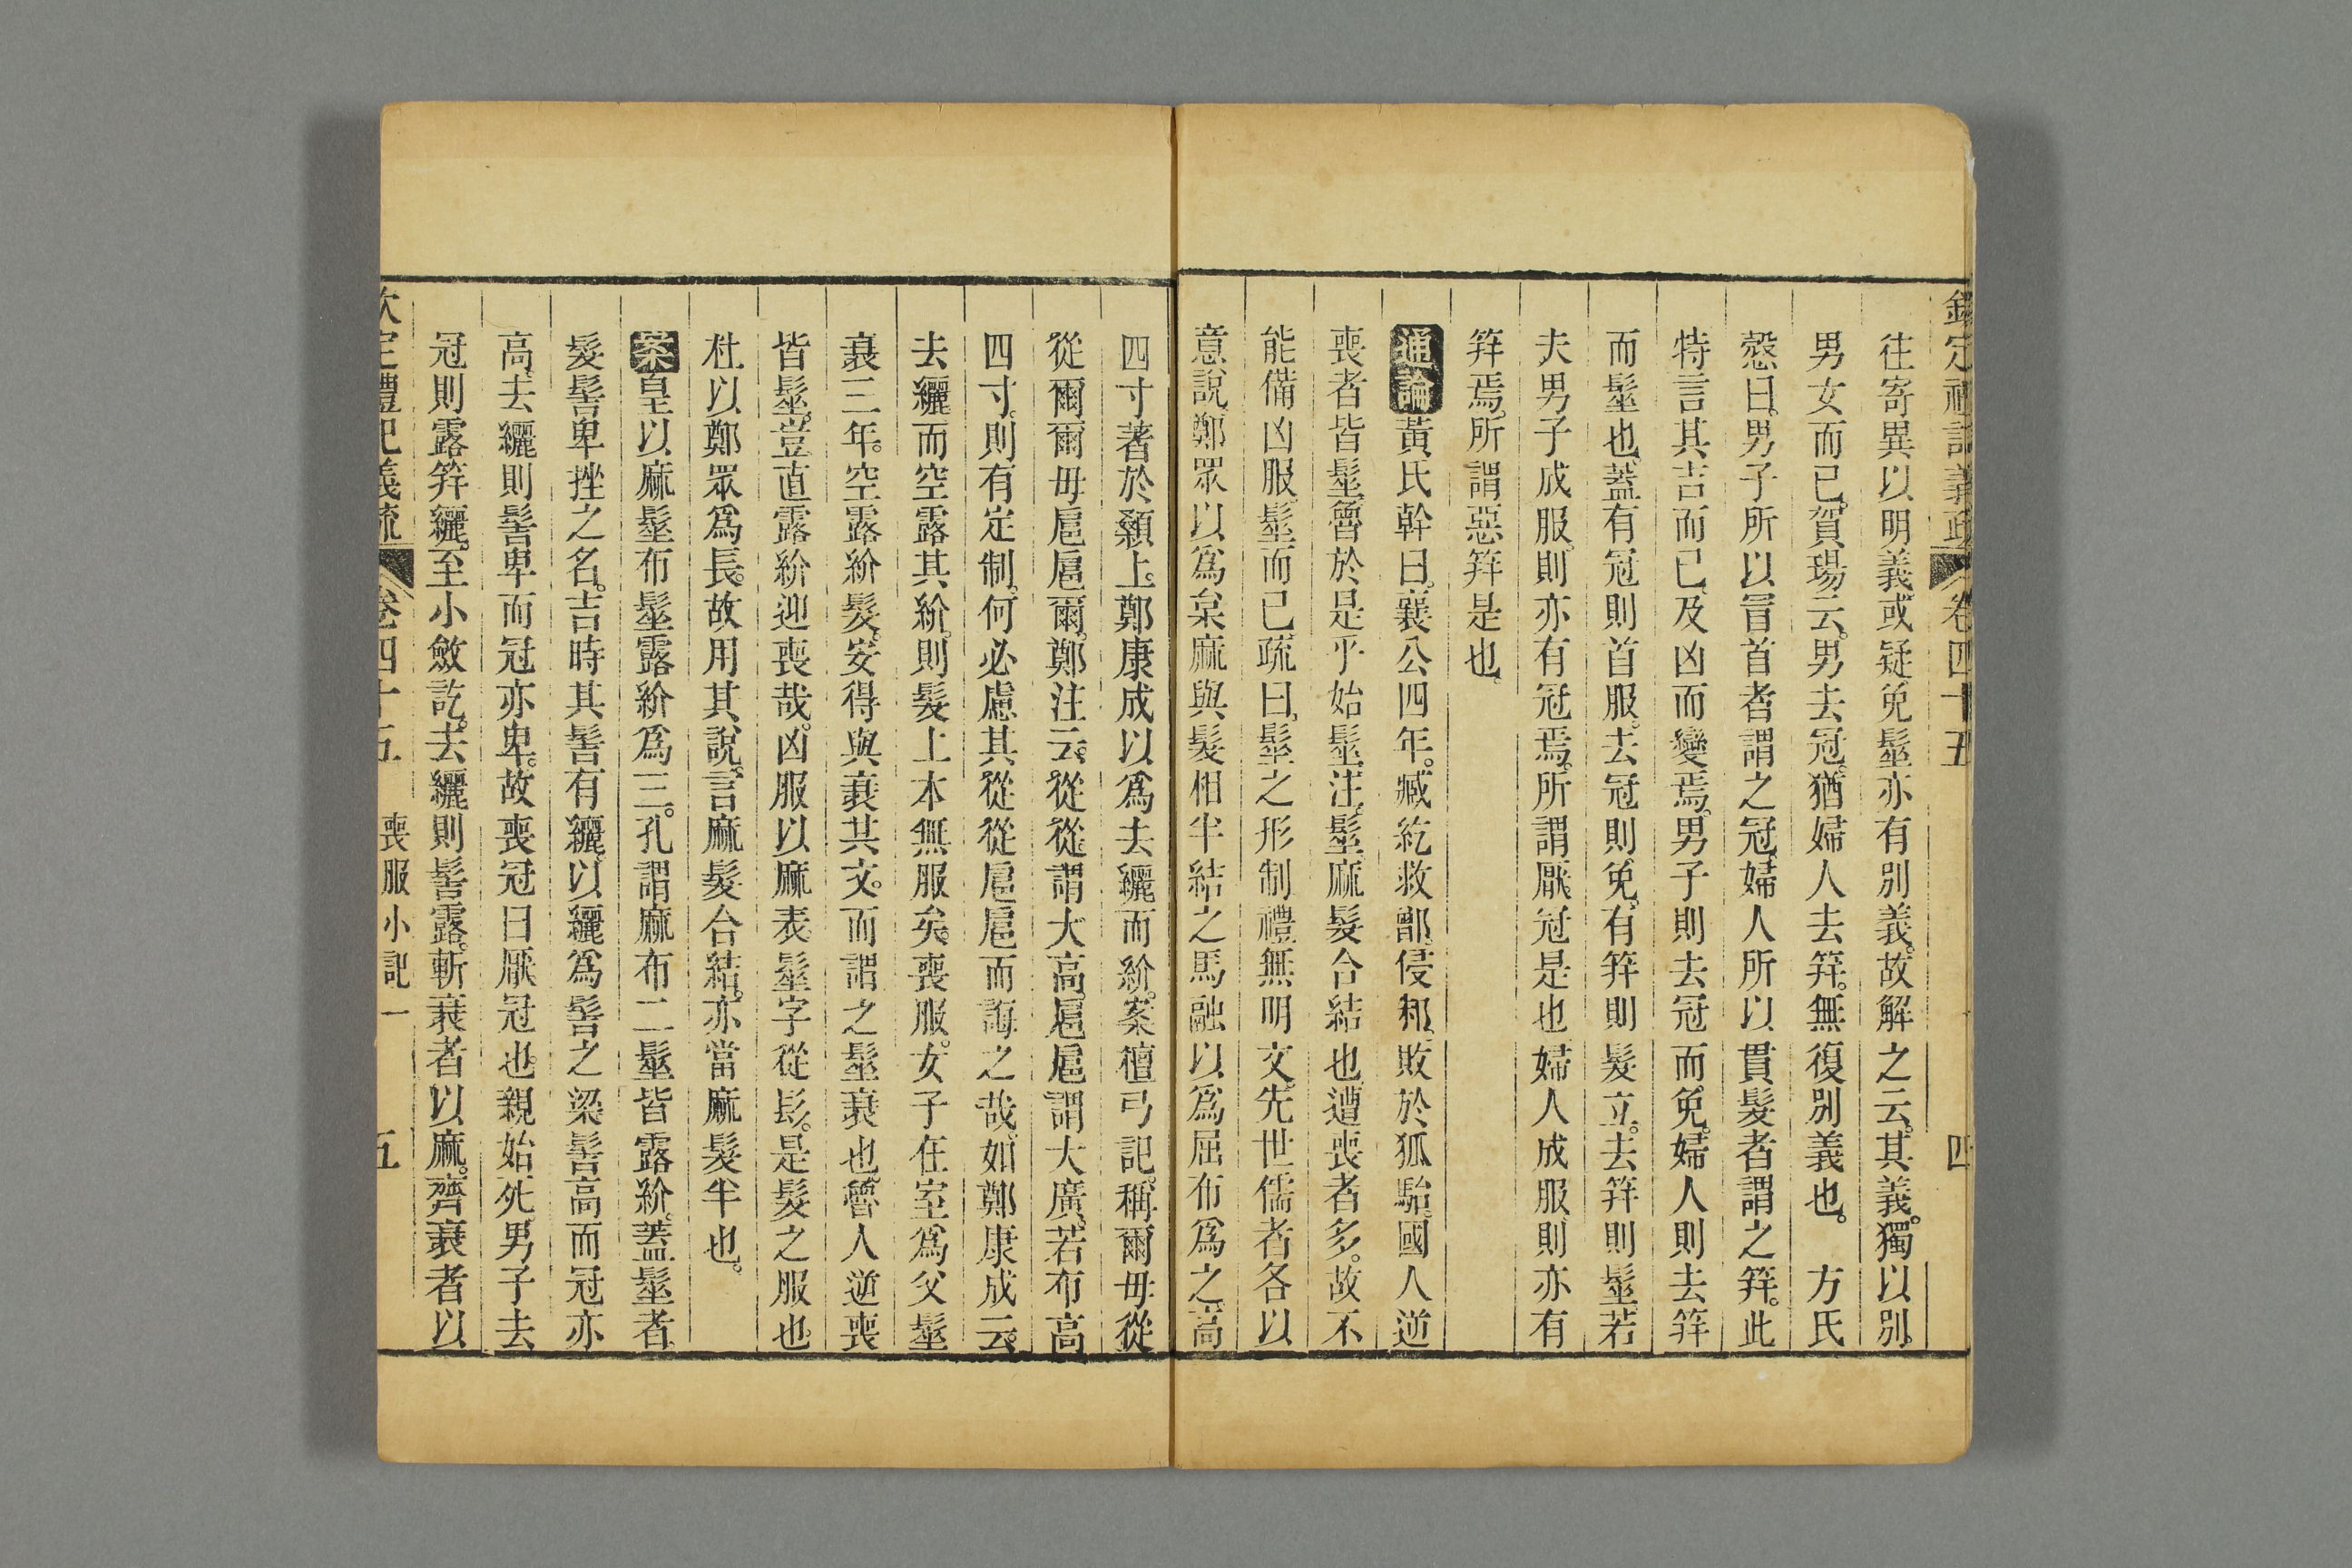 欽定禮記義疏 卷四十五 四
往寄異以明義或疑免髽亦有別義故解之云其義獨以別
男女而已賀瑒云男去冠猶婦人去筓無復別義也 方氏
慤曰男子所以冒首者謂之冠婦人所以貫髮者謂之筓此
特言其吉而已及凶而變焉男子則去冠而免婦人則去筓
而髽也蓋有冠則首服去冠則免有筓則髮立去筓則髽若
夫男子成服則亦有冠焉所謂厭冠是也婦人成服則亦有
筓焉所謂惡筓是也
通論黃氏幹曰襄公四年臧紇救鄫侵邾敗於狐駘國人逆
喪者皆髽魯於是乎始髽注髽麻髮合結也遭喪者多故不
能備凶服髽而已疏曰髽之形制禮無明文先世儒者各以
意說鄭眾以為枲麻與髮相半結之馬融以為屈布為之高
四寸著於顙上鄭康成以為去纚而紒案檀弓記稱爾毋從
從爾爾毋扈扈爾鄭注云從從謂大高扈扈謂大廣若布高
四寸則有定制何必慮其從從扈扈而誨之哉如鄭康成云
去纚而空露其紒則髮上本無服矣喪服女子在室為父髽
衰三年空露紒髮安得與衰共文而謂之髽衰也魯人逆喪
皆髽豈直露紒迎喪哉凶服以麻表髽字從髟是髮之服也
杜以鄭眾為長故用其說言麻髮合結亦當麻髮半也
案皇以麻髽布髽露紒為三孔謂麻布二髽皆露紒蓋髽者
髮髻卑挫之名吉時其髻有纚以纚為髻之梁髻高而冠亦
高去纚則髻卑而冠亦卑故喪冠曰厭冠也親始死男子去
冠則露筓纚至小斂訖去纚則髻露斬衰者以麻齊衰者以
欽定禮記義疏 卷四十五 喪服小記一 五